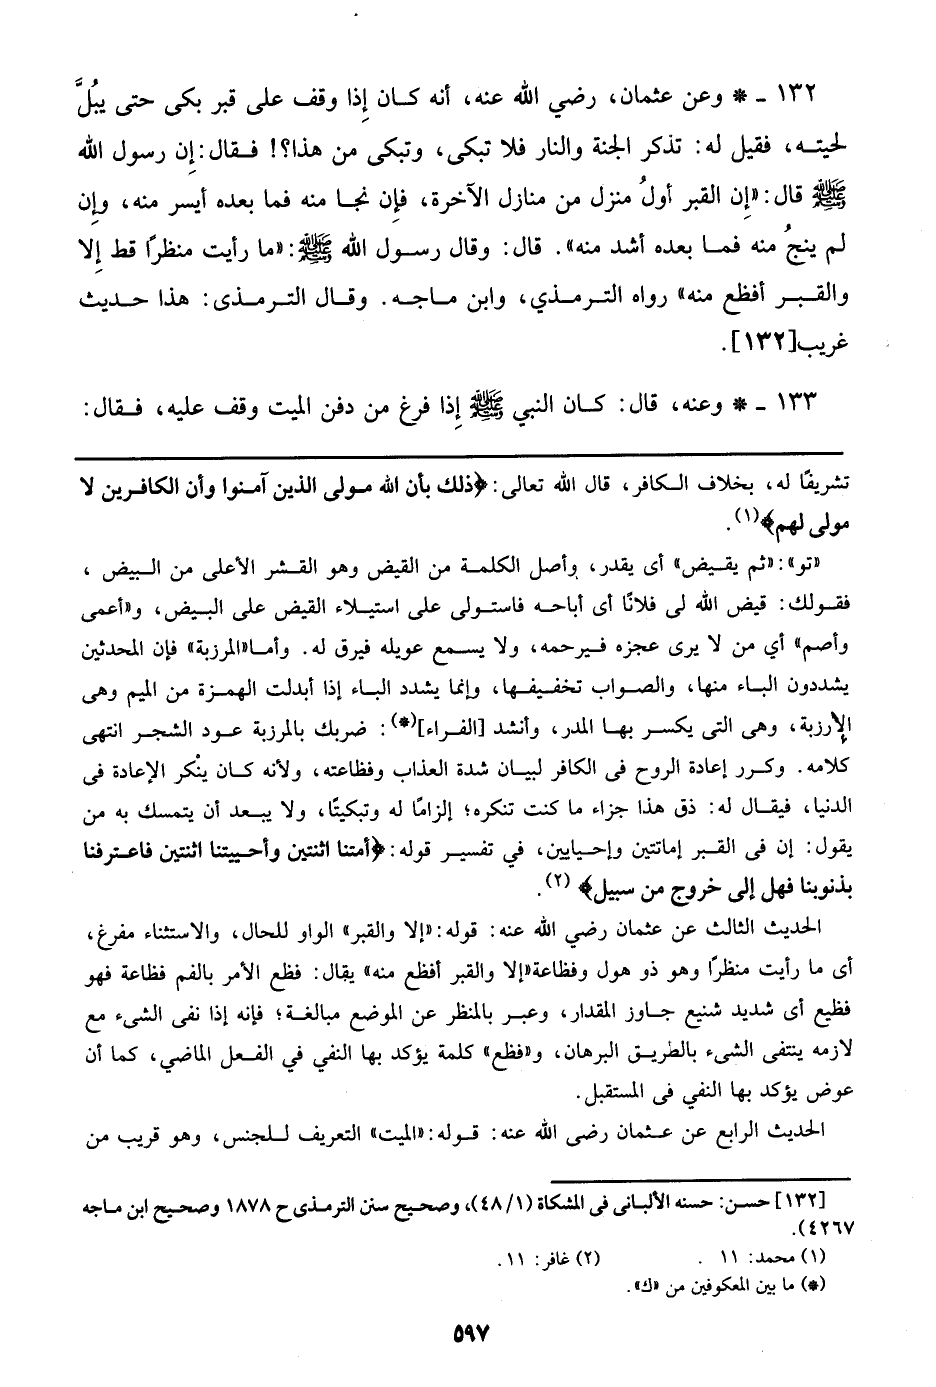 ١٣٢ ـ * وعن عثمان، رضي الله عنه، أنه كان إِذا وقف على قبر بكى حتى يبُلَّ
لحيته، فقيل له: تذكر الجنة والنار فلا تبكى، وتبكى من هذا؟! فقال: إِن رسول الله
ﷺ قال: «إِن القبر أولُ منزل من منازل الآخرة، فإِن نجا منه فما بعده أيسر منه، وإِن
لم ينجُ منه فما بعده أشد منه». قال: وقال رسول الله ﷺ: «ما رأيت منظرًا قط إِلا
والقبر أفظع منه» رواه الترمذي، وابن ماجه. وقال الترمذى: هذا حديث
غريب[١٣٢].
١٣٣ ـ * وعنه، قال: كان النبي ﷺ إِذا فرغ من دفن الميت وقف عليه، فقال:
تشريفًا له، بخلاف الكافر، قال الله تعالى: ﴿ذلك بأن الله مولى الذين آمنوا وأن الكافرين لا
مولى لهم﴾(١).
«تو»: «ثم يقيض» أى يقدر، وأصل الكلمة من القيض وهو القشر الأعلى من البيض ،
فقولك: قيض الله لى فلانًا أى أباحه فاستولى على استيلاء القيض على البيض، و«أعمى
وأصم» أي من لا يرى عجزه فيرحمه، ولا يسمع عويله فيرق له. وأما«المرزبة» فإن المحدثين
يشددون الباء منها، والصواب تخفيفها، وإنما يشدد الباء إذا أبدلت الهمزة من الميم وهى
الإِرزبة، وهى التى يكسر بها المدر، وأنشد [الفراء](*): ضربك بالمرزبة عود الشجر انتهى
كلامه. وكرر إعادة الروح فى الكافر لبيان شدة العذاب وفظاعته، ولأنه كان ينْكر الإعادة فى
الدنيا، فيقال له: ذق هذا جزاء ما كنت تنكره؛ إلزامًا له وتبكيتًا، ولا يبعد أن يتمسك به من
يقول: إن فى القبر إماتتين وإحيايين، في تفسير قوله: ﴿أمتنا اثنتين وأحييتنا اثنتين فاعترفنا
بذنوبنا فهل إلى خروج من سبيل﴾ (٢).
الحديث الثالث عن عثمان رضي الله عنه: قوله: «إلا والقبر» الواو للحال، والاستثناء مفرغ،
أى ما رأيت منظرًا وهو ذو هول وفظاعة«إلا والقبر أفظع منه» يقال: فظع الأمر بالفم فظاعة فهو
فظيع أى شديد شنيع جاوز المقدار، وعبر بالمنظر عن الموضع مبالغة؛ فإنه إذا نفى الشىء مع
لازمه ينتفى الشىء بالطريق البرهان، و«فظع» كلمة يؤكد بها النفي في الفعل الماضي، كما أن
عوض يؤكد بها النفى فى المستقبل.
الحديث الرابع عن عثمان رضى الله عنه: قوله: «الميت» التعريف للجنس، وهو قريب من
[١٣٢] حسن: حسنه الألبانى فى المشكاة (٤٨/١)، وصحيح سنن الترمذى ح ١٨٧٨ وصحيح ابن ماجه
٤٢٦٧).
(١) محمد: ١١ . (٢) غافر: ١١.
(*) ما بين المعكوفين من «ك».
٥٩٧